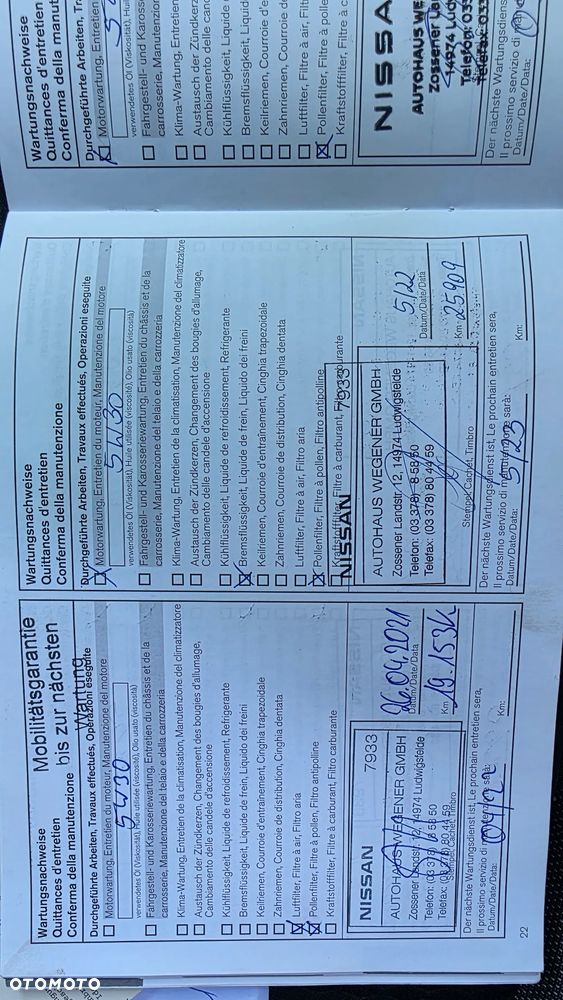 Wartungsnachweise
Quittances d'entretien
Conferma della manutenzione
Mobilitätsgarantie
bis zur nächsten
Wartung
Durchgeführte Arbeiten, Travaux effectués, Operazioni eseguite
Motorwartung, Entretien du moteur, Manutenzione del motore
5W30
verwendetes Öl (Viskosität), Huile utilisée (viscosité), Olio usato (viscosità)
Fahrgestell- und Karosseriewartung, Entretien du châssis et de la
carrosserie, Manutenzione del telaio e della carrozzeria
Klima-Wartung, Entretien de la climatisation, Manutenzione del climatizzatore
Austausch der Zündkerzen, Changement des bougies d'allumage,
Cambiamento delle candele d'accensione
Kühlflüssigkeit, Liquide de refroidissement, Refrigerante
Bremsflüssigkeit, Liquide de frein, Liquido dei freini
Keilriemen, Courroie d'entraînement, Cinghia trapezoidale
Zahnriemen, Courroie de distribution, Cinghia dentata
Luftfilter, Filtre à air, Filtro aria
Pollenfilter, Filtre à pollen, Filtro antipolline
Kraftstofffilter, Filtre à carburant, Filtro carburante
NISSAN 7933
AUTOHAUS WEGENER GMBH
Zossener Landstr. 12, 14974 Ludwigsfelde
Telefon: (03 378) 8 58 50
Telefax: (03 378) 80 44 59
Stempel, Cachet, Timbro
26.04.2021
Datum/Date/Data
Km: 19.153k
Der nächste Wartungsdienst ist, Le prochain entretien sera,
Il prossimo servizio di manutenzione sarà:
Datum/Date/Data: 04/22
Km:
22
Wartungsnachweise
Quittances d'entretien
Conferma della manutenzione
Durchgeführte Arbeiten, Travaux effectués, Operazioni eseguite
Motorwartung, Entretien du moteur, Manutenzione del motore
5W30
verwendetes Öl (Viskosität), Huile utilisée (viscosité), Olio usato (viscosità)
Fahrgestell- und Karosseriewartung, Entretien du châssis et de la
carrosserie, Manutenzione del telaio e della carrozzeria
Klima-Wartung, Entretien de la climatisation, Manutenzione del climatizzatore
Austausch der Zündkerzen, Changement des bougies d'allumage,
Cambiamento delle candele d'accensione
Kühlflüssigkeit, Liquide de refroidissement, Refrigerante
Bremsflüssigkeit, Liquide de frein, Liquido dei freini
Keilriemen, Courroie d'entraînement, Cinghia trapezoidale
Zahnriemen, Courroie de distribution, Cinghia dentata
Luftfilter, Filtre à air, Filtro aria
Pollenfilter, Filtre à pollen, Filtro antipolline
Kraftstofffilter, Filtre à carburant, Filtro carburante
NISSAN 7933
AUTOHAUS WEGENER GMBH
Zossener Landstr. 12, 14974 Ludwigsfelde
Telefon: (03 378) 8 58 50
Telefax: (03 378) 80 44 59
Stempel, Cachet, Timbro
5/22
Datum/Date/Data
Km: 25909
Der nächste Wartungsdienst ist, Le prochain entretien sera,
Il prossimo servizio di manutenzione sarà:
Datum/Date/Data: 5/23
Km:
Wartungsnachweise
Quittances d'entretien
Conferma della manu
Durchgeführte Arbeiten, Tr
Motorwartung, Entretien
verwendetes Öl (Viskosität), Huil
Fahrgestell- und Kaross
carrosserie, Manutenzion
Klima-Wartung, Entretien
Austausch der Zündkerz
Cambiamento delle cand
Kühlflüssigkeit, Liquide d
Bremsflüssigkeit, Liquide
Keilriemen, Courroie d'en
Zahnriemen, Courroie de
Luftfilter, Filtre à air, Filtr
Pollenfilter, Filtre à polle
Kraftstofffilter, Filtre à c
NISSA
AUTOHAUS WEGE
Zossener Land
14974 Ludw
Telefon: 03
Telefax: 033
Der nächste Wartungsdiens
Il prossimo servizio di
Datum/Date/Data:
OTOMOTO